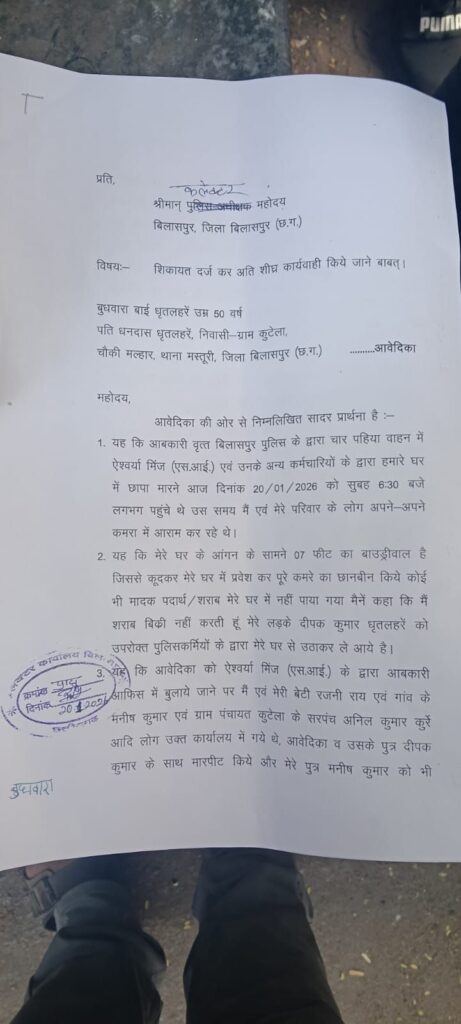 PUMA
प्रति,
कलेक्टर
श्रीमान् पुलिस अधीक्षक महोदय
बिलासपुर, जिला बिलासपुर (छ.ग.)
विषयः– शिकायत दर्ज कर अति शीघ्र कार्यवाही किये जाने बाबत्।
बुधवारा बाई धृतलहरें उम्र 50 वर्ष
पति धनदास धृतलहरें, निवासी–ग्राम कुटेला,
चौकी मल्हार, थाना मस्तूरी, जिला बिलासपुर (छ.ग.) ..........आवेदिका
महोदय,
आवेदिका की ओर से निम्नलिखित सादर प्रार्थना है :–
1. यह कि आबकारी वृत्त बिलासपुर पुलिस के द्वारा चार पहिया वाहन में
ऐश्वर्या मिंज (एस.आई.) एवं उनके अन्य कर्मचारियों के द्वारा हमारे घर
में छापा मारने आज दिनांक 20/01/2026 को सुबह 6:30 बजे
लगभग पहुंचे थे उस समय मैं एवं मेरे परिवार के लोग अपने–अपने
कमरा में आराम कर रहे थे।
2. यह कि मेरे घर के आंगन के सामने 07 फीट का बाउड्रीवाल है
जिससे कूदकर मेरे घर में प्रवेश कर पूरे कमरे का छानबीन किये कोई
भी मादक पदार्थ/शराब मेरे घर में नहीं पाया गया मैनें कहा कि मैं
शराब बिक्री नहीं करती हूं मेरे लड़के दीपक कुमार धृतलहरें को
उपरोक्त पुलिसकर्मियों के द्वारा मेरे घर से उठाकर ले आये है।
3. यह कि आवेदिका को ऐश्वर्या मिंज (एस.आई.) के द्वारा आबकारी
आफिस में बुलाये जाने पर मैं एवं मेरी बेटी रजनी राय एवं गांव के
मनीष कुमार एवं ग्राम पंचायत कुटेला के सरपंच अनिल कुमार कुर्रे
आदि लोग उक्त कार्यालय में गये थे, आवेदिका व उसके पुत्र दीपक
कुमार के साथ मारपीट किये और मेरे पुत्र मनीष कुमार को भी
कार्यालय
क्रमांक
दिनांक
बुधवारा